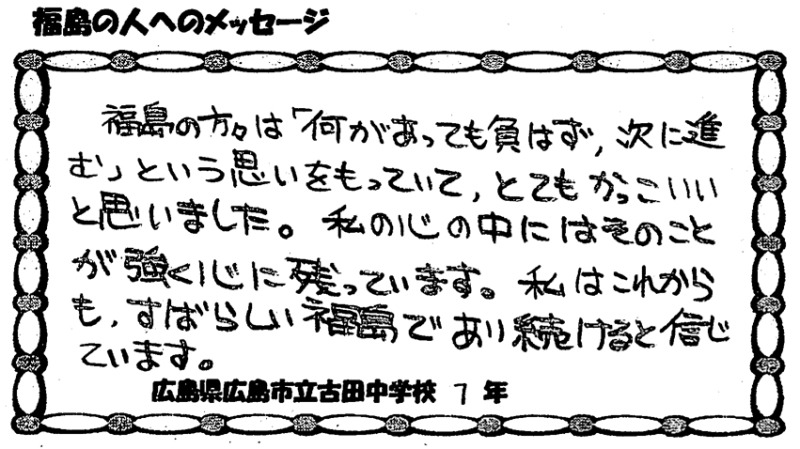 福島の人へのメッセージ
福島の方々は「何があっても負はず，次に進
む」という思いをもっていて，とてもかっこいい
と思いました。私の心の中にはそのこと
が強く心に残っています。私はこれから
も，すばらしい福島であり続けると信じ
ています。
広島県広島市立古田中学校 1 年